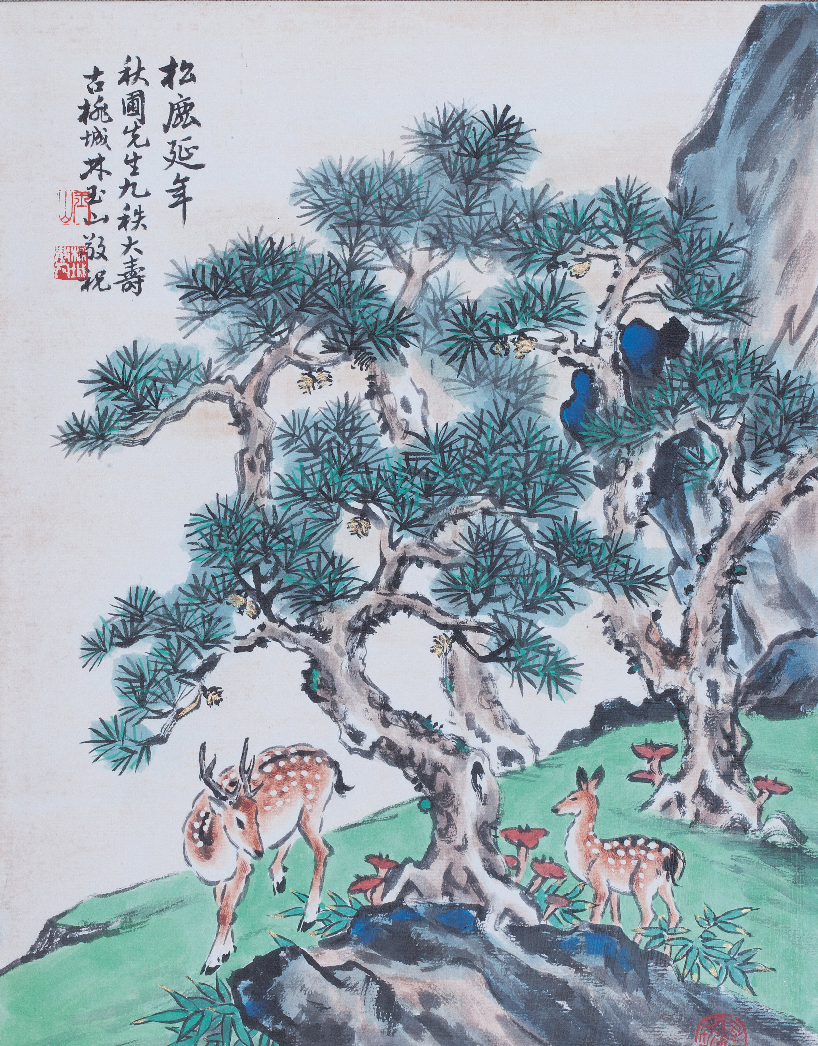 松鹿延年
秋圃先生九秩大壽
古桃城林玉山敬祝